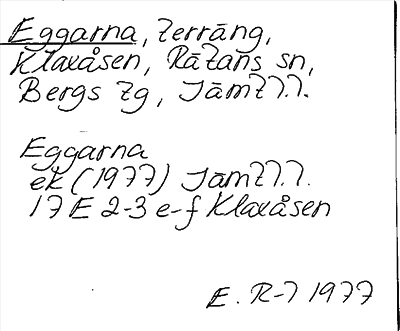 Eggarna, terräng,
Klaxåsen, Rätans sn,
Bergs tg, Jämtl.
Eggarna
ek (1977) Jämtl.
17 E 2-3 e-f Klaxåsen
E. R-l 1977